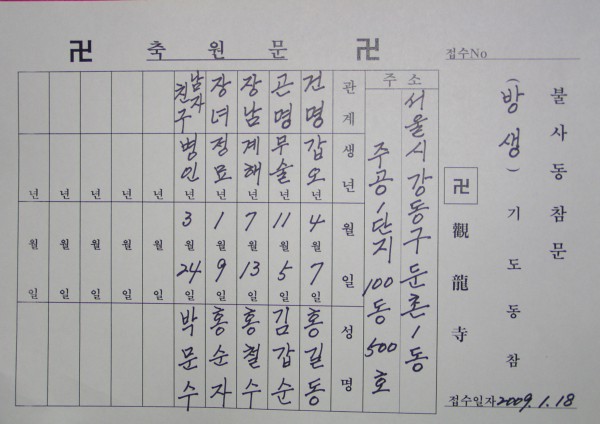 卍 축원문 卍
접수No
불사동참문
(방생) 기도동참
卍 觀龍寺
접수일자 2009.1.18
주소
서울시 강동구 둔촌1동
주공1단지 100동 500호
관계 생년 월 일 성명
건명 갑오년 4월 7일 홍길동
곤명 무술년 11월 5일 김갑순
장남 계해년 7월 13일 홍철수
장녀 정묘년 1월 9일 홍순자
남자친구 병인년 3월 24일 박문수
년 월 일
년 월 일
년 월 일
년 월 일
년 월 일